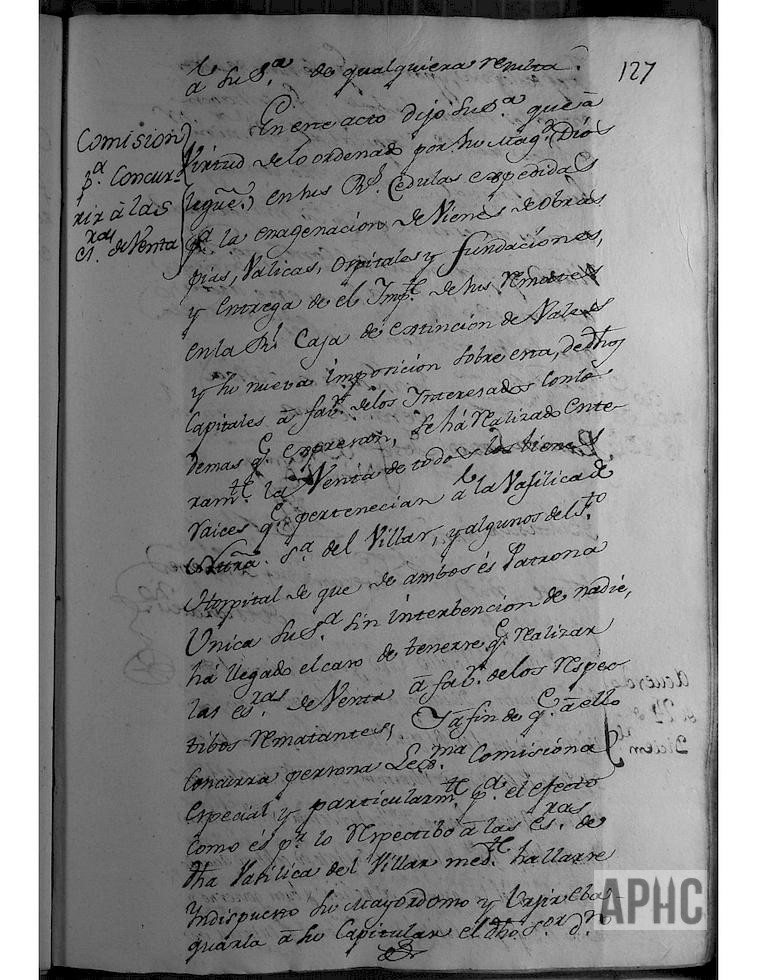 127
â Su S.ª de qualquiera resulta.
Comision
p.ª Concur=
rir â las
es.ras de Venta
En este acto dijo Su S.ª que â
Virtud de lo ordenado por Su Mag.d (Dios
legûe.) en sus R.s Cedulas expedidas
p.ª la enagenacion de Vienes de obras
pias, Vasilicas, ospitales y fundaciones,
y entrega de el Imp.te de sus Remates
en la R.l Caja de extincion de Vales
y su nueva imposicion sobre esta, de dhos
Capitales â fab.r de los Interesados con lo
demas q.e expresan, se hâ Realizado ente
ram.te la Venta de todos los bienes
raices q.e pertenecian â la Vasilica de
Ntrâ. S.ª del Villar, y algunos del S.to
Hospital de que de ambos és Patrona
Unica Su S.ª sin interbencion de nadie,
hà llegado el caso de tenerse q.e Realizar
las es.ras de Venta â fab.r de los Respec
tibos Rematantes; Y â fin de q.e â ello
Concurra persona Lexma. Comisiona
especial y particularm.te p.ª el efecto
como és p.r lo Respectibo â las es.ras de
dha Vasilica del Villar med.te hallarse
Yndispuesto su Mayordomo y Vasir Ebas
quarla â su Capitular el dho S.or D.n
Acuerdo